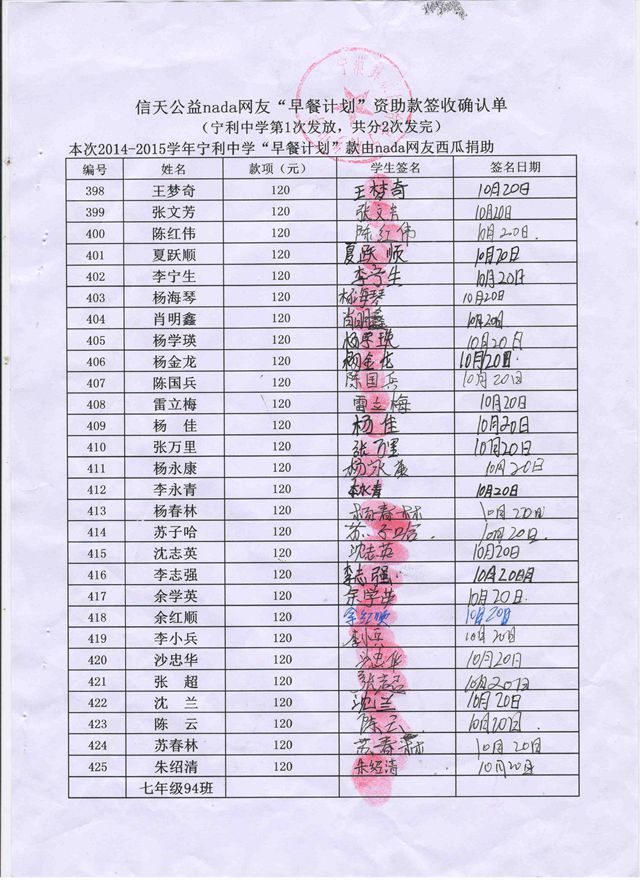 信天公益nada网友“早餐计划”资助款签收确认单
（宁利中学第1次发放，共分2次发完）
本次2014-2015学年宁利中学“早餐计划”款由nada网友西瓜捐助
编号 姓名 款项（元） 学生签名 签名日期
398 王梦奇 120 王梦奇 10月20日
399 张文芳 120 张文芳 10月20日
400 陈红伟 120 陈红伟 10月20日.
401 夏跃顺 120 夏跃顺 10月20日
402 李宁生 120 李宁生 10月20日
403 杨海琴 120 杨海琴 10月20日
404 肖明鑫 120 肖明鑫 10月20日
405 杨学瑛 120 杨学瑛 10月20日
406 杨金龙 120 杨金龙 10月20日
407 陈国兵 120 陈国兵 10月20日
408 雷立梅 120 雷立梅 10月20日
409 杨 佳 120 杨佳 10月20日
410 张万里 120 张万里 10月20日
411 杨永康 120 杨永康 10月20日
412 李永青 120 李永青 10月20日
413 杨春林 120 杨春林 10月20日
414 苏子哈 120 苏子哈. 10月20日.
415 沈志英 120 沈志英 10月20日
416 李志强 120 李志强. 10月20日
417 余学英 120 余学英 10月20日.
418 余红顺 120 余红顺 10月20日
419 李小兵 120 李小兵 10月20日
420 沙忠华 120 沙忠华 10月20日
421 张 超 120 张超 10月20日
422 沈 兰 120 沈兰 10月20日
423 陈 云 120 陈云. 10月20日.
424 苏春林 120 苏春林 10月20日
425 朱绍清 120 朱绍清 10月20日
七年级94班